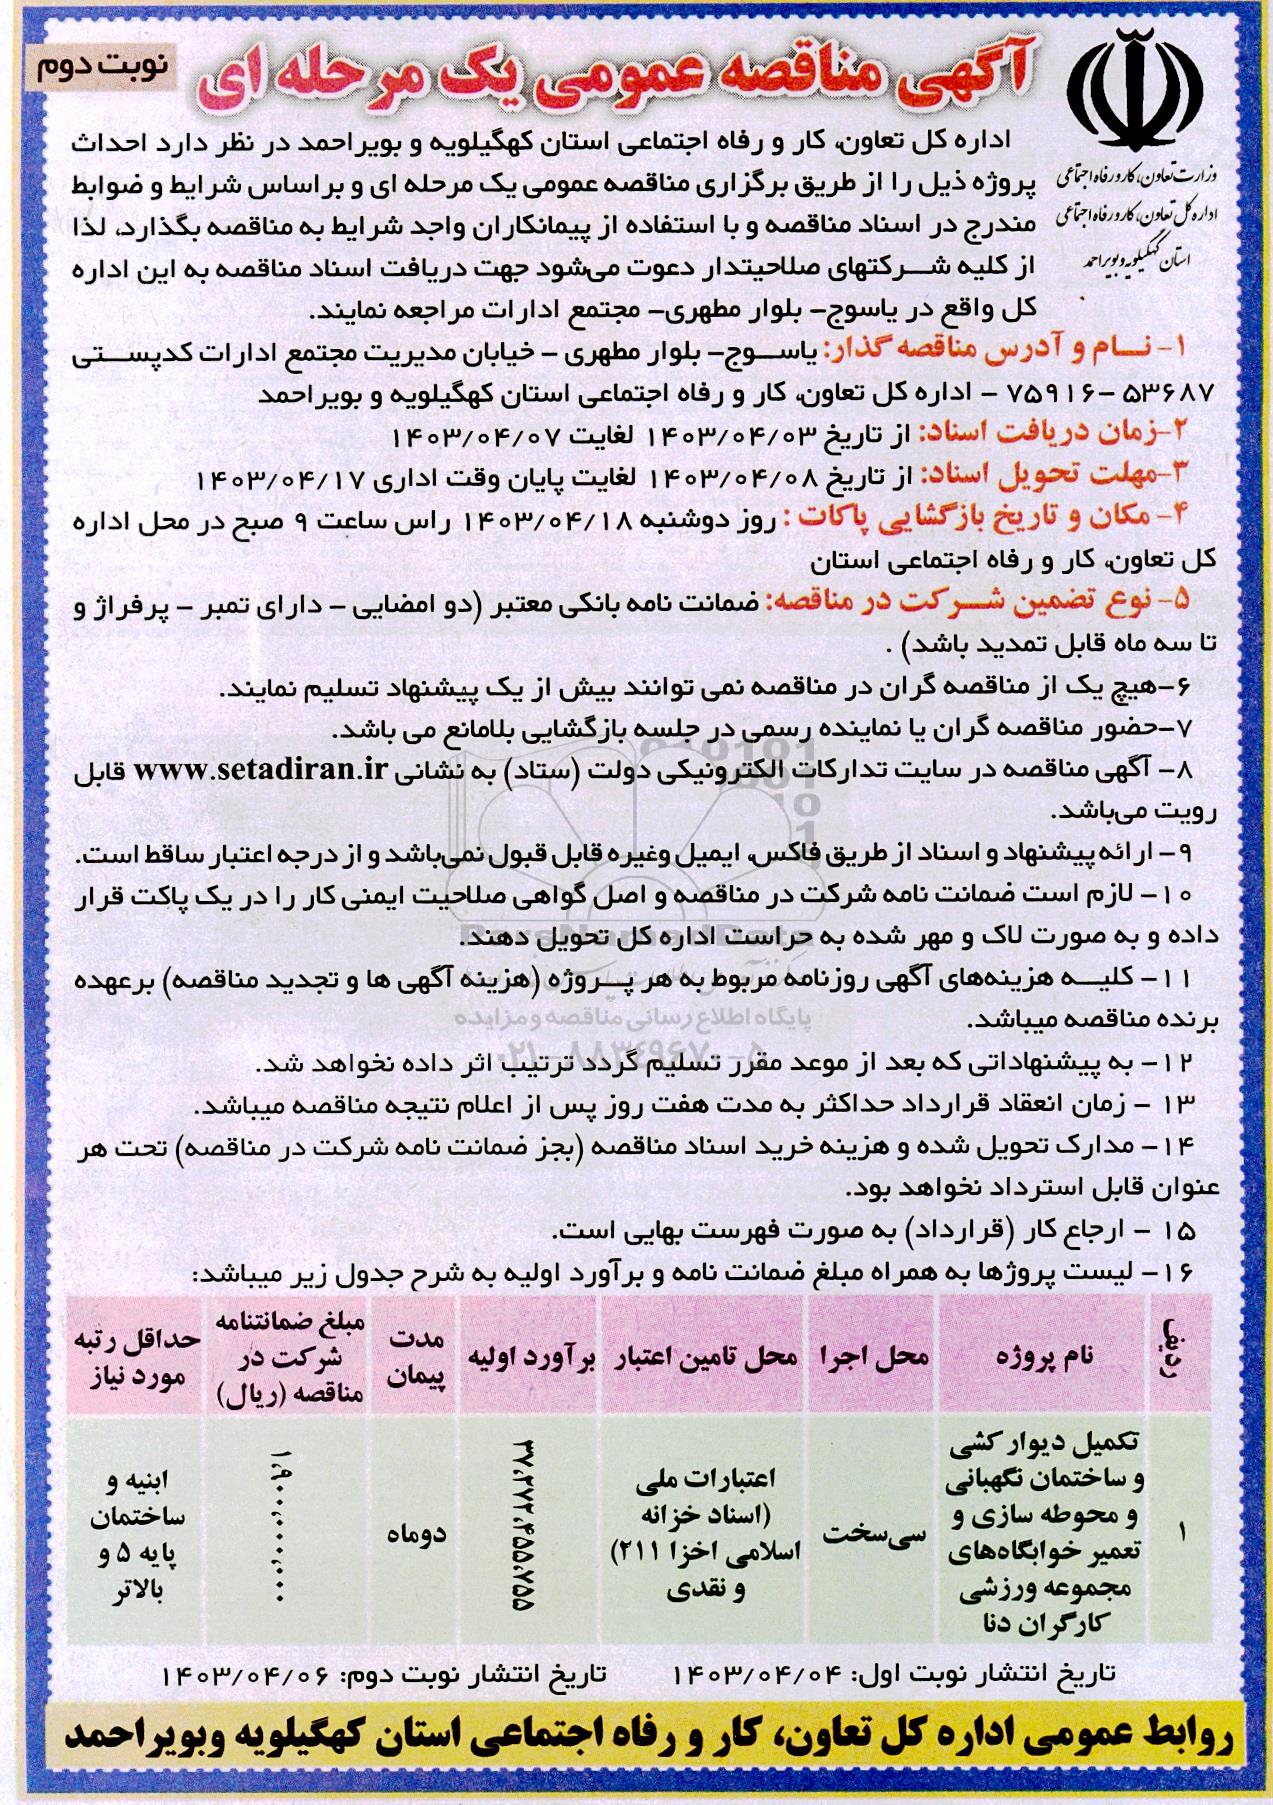 نوبت دوم
آگهی مناقصه عمومی یک مرحله ای
وزارت تعاون، کار و رفاه اجتماعی
اداره کل تعاون، کار و رفاه اجتماعی
استان کهگیلویه و بویراحمد
اداره کل تعاون، کار و رفاه اجتماعی استان کهگیلویه و بویراحمد در نظر دارد احداث
پروژه ذیل را از طریق برگزاری مناقصه عمومی یک مرحله ای و براساس شرایط و ضوابط
مندرج در اسناد مناقصه و با استفاده از پیمانکاران واجد شرایط به مناقصه بگذارد، لذا
از کلیه شرکتهای صلاحیتدار دعوت می‌شود جهت دریافت اسناد مناقصه به این اداره
کل واقع در یاسوج- بلوار مطهری- مجتمع ادارات مراجعه نمایند.
۱- نام و آدرس مناقصه گذار: یاسوج- بلوار مطهری - خیابان مدیریت مجتمع ادارات کدپستی
۷۵۹۱۶-۵۳۶۸۷ - اداره کل تعاون، کار و رفاه اجتماعی استان کهگیلویه و بویراحمد
۲-زمان دریافت اسناد: از تاریخ ۱۴۰۳/۰۴/۰۳ لغایت ۱۴۰۳/۰۴/۰۷
۳-مهلت تحویل اسناد: از تاریخ ۱۴۰۳/۰۴/۰۸ لغایت پایان وقت اداری ۱۴۰۳/۰۴/۱۷
۴- مکان و تاریخ بازگشایی پاکات : روز دوشنبه ۱۴۰۳/۰۴/۱۸ راس ساعت ۹ صبح در محل اداره
کل تعاون، کار و رفاه اجتماعی استان
۵- نوع تضمین شرکت در مناقصه: ضمانت نامه بانکی معتبر (دو امضایی - دارای تمبر - پرفراژ و
تا سه ماه قابل تمدید باشد) .
۶-هیچ یک از مناقصه گران در مناقصه نمی توانند بیش از یک پیشنهاد تسلیم نمایند.
۷-حضور مناقصه گران یا نماینده رسمی در جلسه بازگشایی بلامانع می باشد.
۸- آگهی مناقصه در سایت تدارکات الکترونیکی دولت (ستاد) به نشانی www.setadiran.ir قابل
رویت می‌باشد.
۹- ارائه پیشنهاد و اسناد از طریق فاکس، ایمیل وغیره قابل قبول نمی‌باشد و از درجه اعتبار ساقط است.
۱۰- لازم است ضمانت نامه شرکت در مناقصه و اصل گواهی صلاحیت ایمنی کار را در یک پاکت قرار
داده و به صورت لاک و مهر شده به حراست اداره کل تحویل دهند.
۱۱- کلیه هزینه‌های آگهی روزنامه مربوط به هر پروژه (هزینه آگهی ها و تجدید مناقصه) برعهده
برنده مناقصه میباشد.
پایگاه اطلاع رسانی مناقصه و مزایده
۰۲۱-۸۸۳۴۹۶۷۰-۵
۱۲- به پیشنهاداتی که بعد از موعد مقرر تسلیم گردد ترتیب اثر داده نخواهد شد.
۱۳ - زمان انعقاد قرارداد حداکثر به مدت هفت روز پس از اعلام نتیجه مناقصه میباشد.
۱۴- مدارک تحویل شده و هزینه خرید اسناد مناقصه (بجز ضمانت نامه شرکت در مناقصه) تحت هر
عنوان قابل استرداد نخواهد بود.
۱۵ - ارجاع کار (قرارداد) به صورت فهرست بهایی است.
۱۶- لیست پروژها به همراه مبلغ ضمانت نامه و برآورد اولیه به شرح جدول زیر میباشد:
ردیف
نام پروژه
محل اجرا
محل تامین اعتبار
برآورد اولیه
مدت
پیمان
مبلغ ضمانتنامه
شرکت در
مناقصه (ریال)
حداقل رتبه
مورد نیاز
۱
تکمیل دیوار کشی
و ساختمان نگهبانی
و محوطه سازی و
تعمیر خوابگاه‌های
مجموعه ورزشی
کارگران دنا
سی‌سخت
اعتبارات ملی
(اسناد خزانه
اسلامی اخزا ۲۱۱)
و نقدی
۳۷،۲۷۲،۴۵۵،۷۵۵
دوماه
۱،۹۰۰،۰۰۰،۰۰۰
ابنیه و
ساختمان
پایه ۵ و
بالاتر
تاریخ انتشار نوبت اول: ۱۴۰۳/۰۴/۰۴ تاریخ انتشار نوبت دوم: ۱۴۰۳/۰۴/۰۶
روابط عمومی اداره کل تعاون، کار و رفاه اجتماعی استان کهگیلویه وبویراحمد